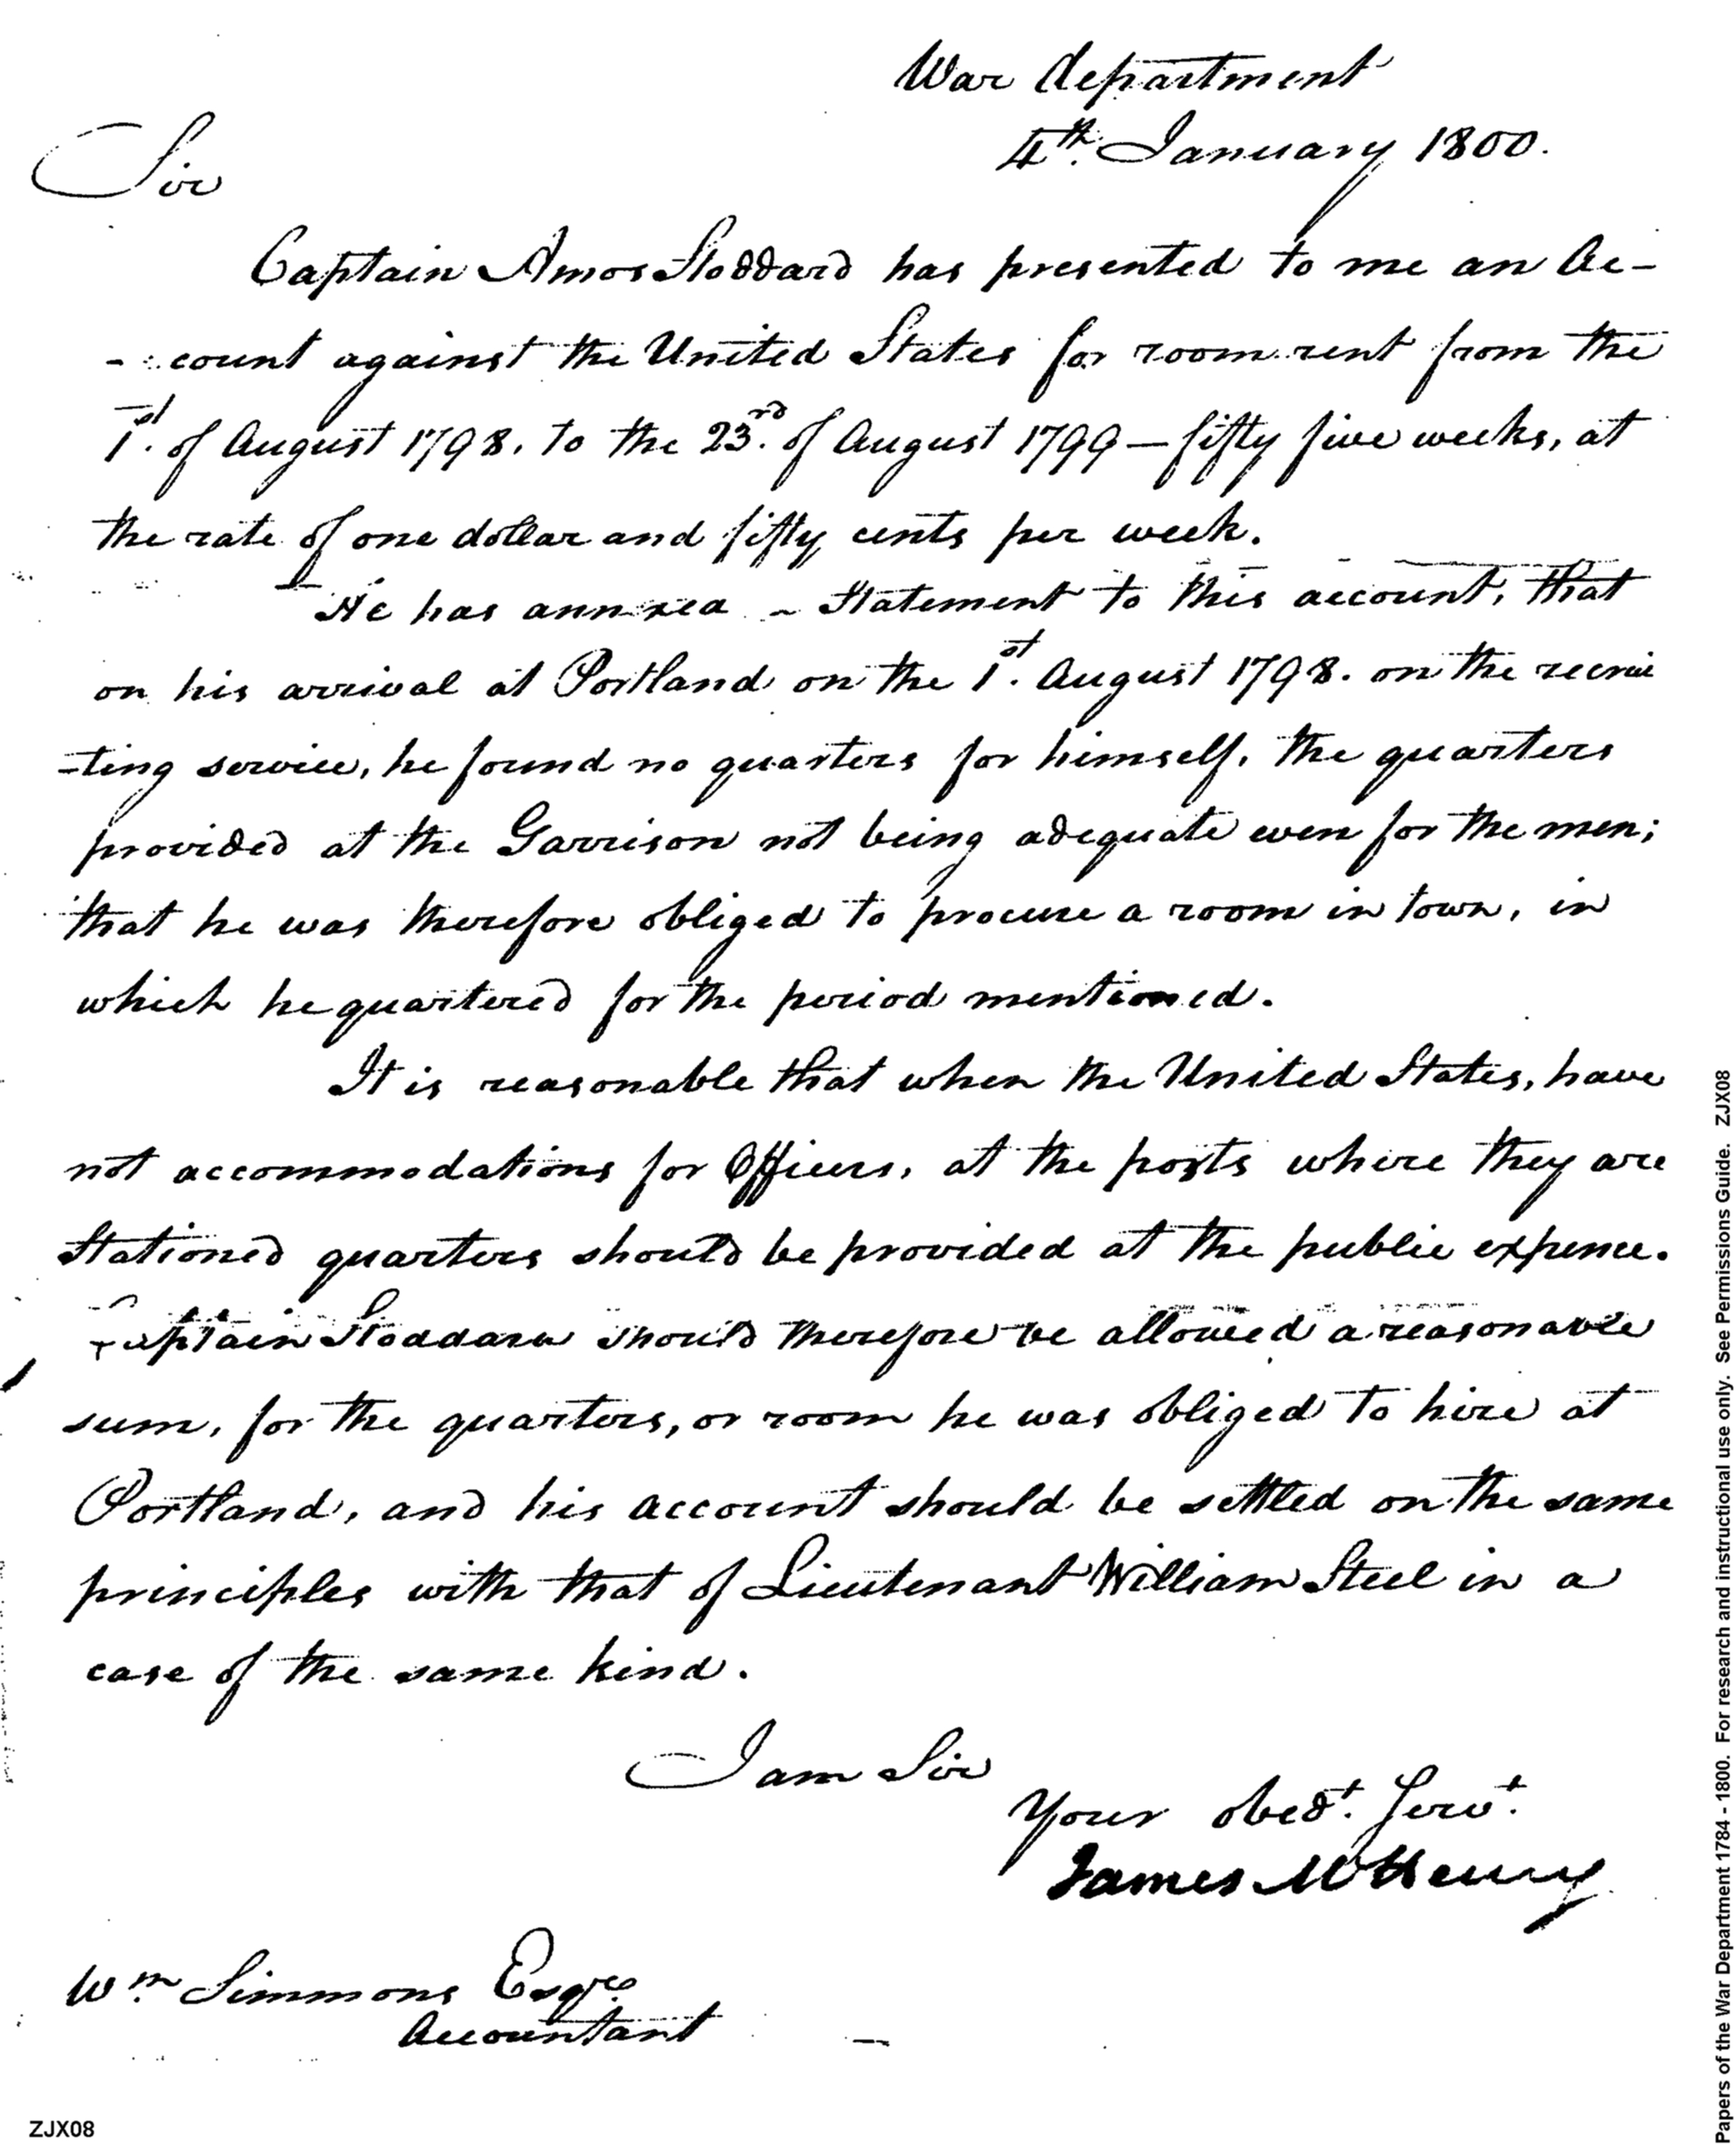 War department
4th. January 1800.
Sir
Captain Amos Stoddard has presented to me an Ac-
-count against the United States for room rent from the
1st. of August 1798. to the 23rd. of August 1799 — fifty five weeks, at
the rate of one dollar and fifty cents per week.
He has annexed a Statement to this account, that
on his arrival at Portland on the 1st. August 1798. on the recrui
-ting service, he found no quarters for himself, the quarters
provided at the Garrison not being adequate even for the men;
that he was therefore obliged to procure a room in town, in
which he quartered for the period mentioned.
It is reasonable that when the United States, have
not accommodations for Officers, at the posts where they are
Stationed quarters should be provided at the public expence.
Captain Stoddard should therefore be allowed a reasonable
sum, for the quarters, or room he was obliged to hire at
Portland, and his account should be settled on the same
principles with that of Lieutenant William Steel in a
case of the same kind.
I am Sir
Your obedt. Servt.
James McHenry
Wm. Simmons Esqre.
Accountant
ZJX08
Papers of the War Department 1784 - 1800. For research and instructional use only. See Permissions Guide. ZJX08